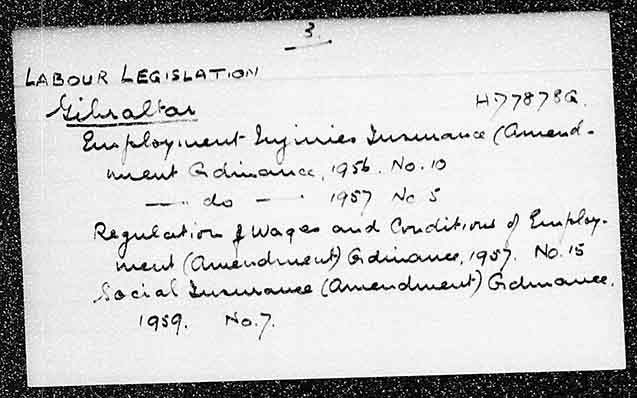 3.
LABOUR LEGISLATION
Gibraltar
H77878G.
Employment Injuries Insurance (Amend-
ment Ordinance, 1956. No. 10
— do — 1957 No 5
Regulation of Wages and Conditions of Employ-
ment (Amendment) Ordinance, 1957. No. 15
Social Insurance (Amendment) Ordinance,
1959. No. 7.